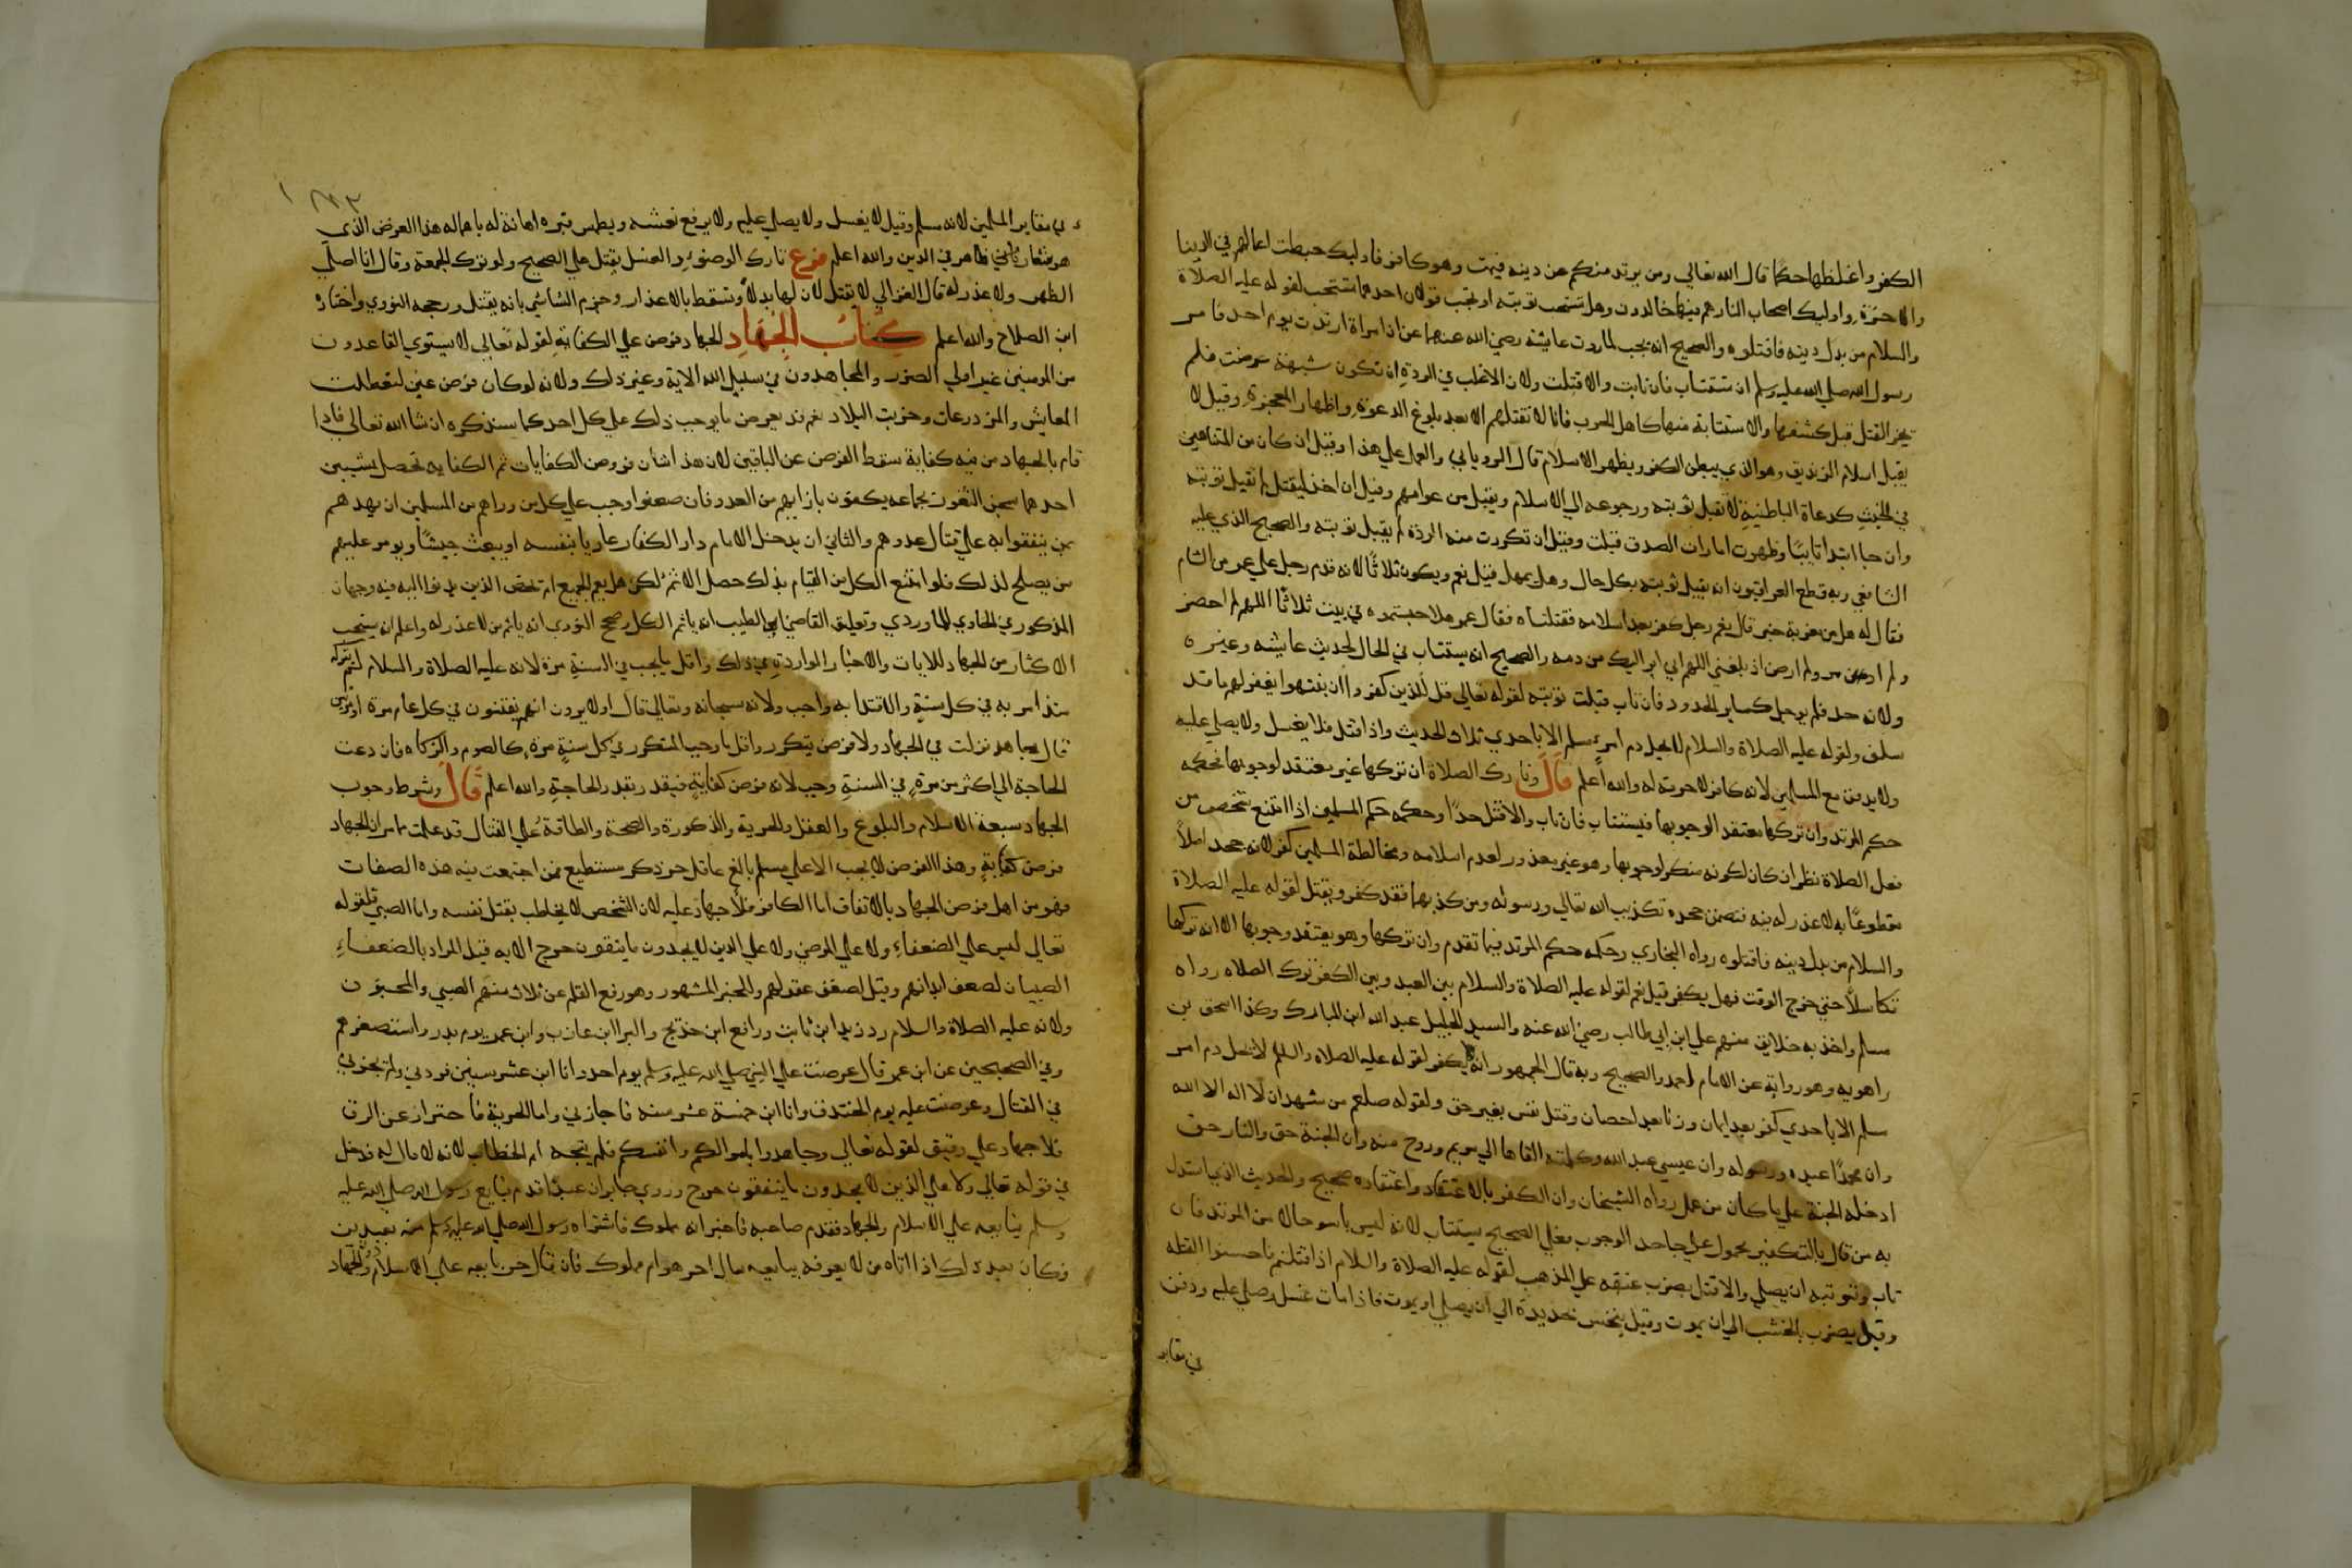 الكفر واغلظها حكما قال الله تعالى ومن يرتد منكم عن دينه فيمت وهو كافر فاوليك حبطت اعمالهم في الدنيا
والاخرة واوليك اصحاب النار هم فيها خالدون وهل تستحب توبته او تجب قولان احدهما تستحب لقوله عليه الصلاة
والسلام من بدل دينه فاقتلوه والصحيح انه يجب لما روت عايشة رضي الله عنها عن ان امراة ارتدت يوم احد فامر
رسول الله صلى الله عليه وسلم ان تستتاب فان تابت والا قتلت ولان الاغلب في الردة ان تكون شبهة عرضت فلم
يجز القتل قبل كشفها والاستتابة منها كاهل الحرب فانا لا نقتلهم الا بعد بلوغ الدعوة واظهار المعجزة وقيل لا
يقبل اسلام الزنديق وهو الذي يبطن الكفر ويظهر الاسلام قال الروياني والعمل على هذا وقيل ان كان من المتناهين
في الخبث كدعاة الباطنية لا تقبل توبته ورجوعه الى الاسلام ويقبل من عوامهم وقيل ان اخذ ليقتل لم تقبل توبته
وان جا ابتدا تايبا وظهرت امارات الصدق قبلت وقيل ان تكررت منه الردة لم يقبل توبته والصحيح الذي عليه
الشافعي وبه قطع العراقيون انه يقبل توبته بكل حال وهل يمهل قيل نعم ويكون ثلاثا لانه قدم رجل على عمر من الشام
فقال له هل من مغربة خبر قال نعم رجل كفر بعد اسلامه فقتلناه فقال عمر هلا حبستموه في بيت ثلاثا اللهم لم احضر
ولم امر ولم ارض اذ بلغني اللهم اني ابرا اليك من دمه والصحيح انه يستتاب في الحال لحديث عايشه وغيره
ولانه حد فلم يوجل كساير الحدود فان تاب قبلت توبته لقوله تعالى قل للذين كفروا ان ينتهوا يغفر لهم ما قد
سلف ولقوله عليه الصلاة والسلام لا يحل دم امرئ مسلم الا باحدي ثلاث الحديث واذا قتل فلا يغسل ولا يصلي عليه
ولا يدفن مع المسلمين لانه كافر لا حرمة له والله اعلم قال وتارك الصلاة ان تركها غير معتقد لوجوبها فحكمه
حكم المرتد وان تركها معتقد الوجوبها فيستتاب فان تاب والا قتل حدا وحكمه حكم المسلمين اذا امتنع شخص من
فعل الصلاة نظر ان كان لكونه منكر لوجوبها وهو غير معذور لعدم اسلامه ومخالطة المسلمين كفر لانه جحد اصلا
مقطوعا به لا عذر له فيه فتضمن جحده تكذيب الله تعالى ورسوله ومن كذبهما فقد كفر ويقتل لقوله عليه الصلاة
والسلام من بدل دينه فاقتلوه رواه البخاري وحكمه حكم المرتد فيما تقدم وان تركها وهو يعتقد وجوبها الا انه تركها
تكاسلا حتي خرج الوقت فهل يكفر قيل نعم لقوله عليه الصلاة والسلام بين العبد وبين الكفر ترك الصلاه رواه
مسلم واخذ به خلايق منهم علي ابن ابي طالب رضي الله عنه والسيد الجليل عبد الله ابن المبارك وكذا اسحق بن
راهويه وهو رواية عن الامام احمد والصحيح وبه قال الجمهور انه لا يكفر لقوله عليه الصلاه والسلم لا يحل دم امر
مسلم الا باحدي كفر بعد ايمان وزنا بعد احصان وقتل نفس بغير حق ولقوله صلعم من شهد ان لا اله الا الله
وان محمدا عبده ورسوله وان عيسي عبد الله وكلمته القاها الى مريم وروح منه وان الجنة حق والنار حق
ادخله الجنة علي ما كان من عمل رواه الشيخان وان الكفر بالاعتقاد واعتقاده صحيح والحديث الذي استدل
به من قال بالتكفير محمول علي جاحد الوجوب فعلي الصحيح يستتاب لانه ليس باسو حالا من المرتد فان
تاب وتوبته ان يصلي والا قتل بضرب عنقه علي المذهب لقوله عليه الصلاة والسلام اذا قتلتم فاحسنوا القتله
وقيل يضرب بالخشب الى ان يموت وقيل ينخس بحديدة الي ان يصلي او يموت فاذا مات غسل وصلي عليه ودفن
في مقابر
في مقابر المسلمين لانه مسلم وقيل لا يغسل ولا يصلي عليه ولا يرفع نعشه ويطمس قبره اهانة له باهماله هذا الفرض الذي
هو شعار ظاهر في الدين والله اعلم فرع تارك الوضوء والغسل يقتل علي الصحيح ولو ترك الجمعة وقال انا اصلي
الظهر ولا عذر له قال الغزالي لا يقتل لان لها بدلا وتسقط بالاعذار وجزم الشاشي بانه يقتل ورجحه النووي واختاره
ابن الصلاح والله اعلم كتاب الجهاد الجهاد فرض علي الكفاية لقوله تعالي لا يستوي القاعدون
من المومنين غير اولي الضرر والمجاهدون في سبيل الله الاية وغير ذلك ولانه لو كان فرض عين لتعطلت
المعايش والمزدرعات وخربت البلاد نعم قد يعرض ما يوجب ذلك علي كل احد كما سنذكره ان شا الله تعالي فاذا
قام بالجهاد من فيه كفاية سقط الفرض عن الباقين لان هذا شان فروض الكفايات ثم الكفايه تحصل بشيين
احدهما شحن الثغور بجماعه يكفون بازايهم من العدو فان ضعفوا وجب علي كل من وراهم من المسلمين ان يمدهم
بمن يتقوا به علي قتال عدوهم والثاني ان يدخل الامام دار الكفار غازيا بنفسه او يبعث جيشا ويومر عليهم
من يصلح لذلك فلو امتنع الكل من القيام بذلك حصل الاثم لكن هل يعم الجميع ام تختص الذين يدنوا اليه فيه وجهان
المذكور في الحاوي للماوردي وتعليق القاضي ابو الطيب انه ياثم الكل وصحح النووي انه ياثم من لا عذر له واعلم انه يستحب
الاكثار من الجهاد للايات والاخبار الواردة في ذلك واقل ما يجب في السنة مرة لانه عليه الصلاة والسلام لم يتركه
منذ امر به في كل سنة والاقتدا به واجب ولانه سبحانه وتعالي قال اولا يرون انهم يفتنون في كل عام مرة او مرتين
قال مجاهد نزلت في الجهاد ولا فرض يتكرر واقل ما وجب المتكرر في كل سنة مرة كالصوم والزكاه فان دعت
الحاجة الى اكثر من مرة في السنة وجب لانه فرض كفاية فيقدر بقدر الحاجة والله اعلم قال وشرط وجوب
الجهاد سبعة الاسلام والبلوغ والعقل والحرية والذكورة والصحة والطاقة علي القتال قد علمت مما مر ان الجهاد
فرض كفاية وهذا الفرض لا يجب الا علي مسلم بالغ عاقل حر ذكر مستطيع فمن اجتمعت فيه هذه الصفات
فهو من اهل فرض الجهاد بالاتفاق اما الكافر فلا جهاد عليه لان الشخص لا يخاطب بقتل نفسه واما الصبي فلقوله
تعالي ليس علي الضعفاء ولا علي المرضي ولا علي الذين لا يجدون ما ينفقون حرج الايه قيل المراد بالضعفاء
الصبيان لضعف ابدانهم وقيل لضعف عقولهم والخبر المشهور وهو رفع القلم عن ثلاث منهم الصبي والمجنون
ولانه عليه الصلاة والسلام رد زيد ابن ثابت ورافع ابن خديج والبرا ابن عازب وابن عمر يوم بدر واستصغرهم
وفي الصحيحين عن ابن عمر قال عرضت علي النبي صلي الله عليه وسلم يوم احد وانا ابن عشر سنين فردني ولم يجزني
في القتال وعرضت عليه يوم الخندق وانا ابن خمسة عشر سنه فاجازني واما الحرية فاحتراز عن الرق
فلا جهاد علي رقيق لقوله تعالي وجاهدوا باموالكم وانفسكم فلم يتجه الخطاب لانه لا مال له فدخل
في قوله تعالي ولا علي الذين لا يجدون ما ينفقون حرج وروي جابر ان عبدا قدم فبايع رسول الله صلي الله عليه
وسلم يبايعه علي الاسلام والجهاد فقدم صاحبه فاخبر انه مملوك فاشتراه رسول الله صلي الله عليه وسلم منه بعبدين
وكان بعد ذلك اذا اتاه من لا يعرفه يبايعه سال احر هو ام مملوك فان قال حر بايعه علي الاسلام والجهاد